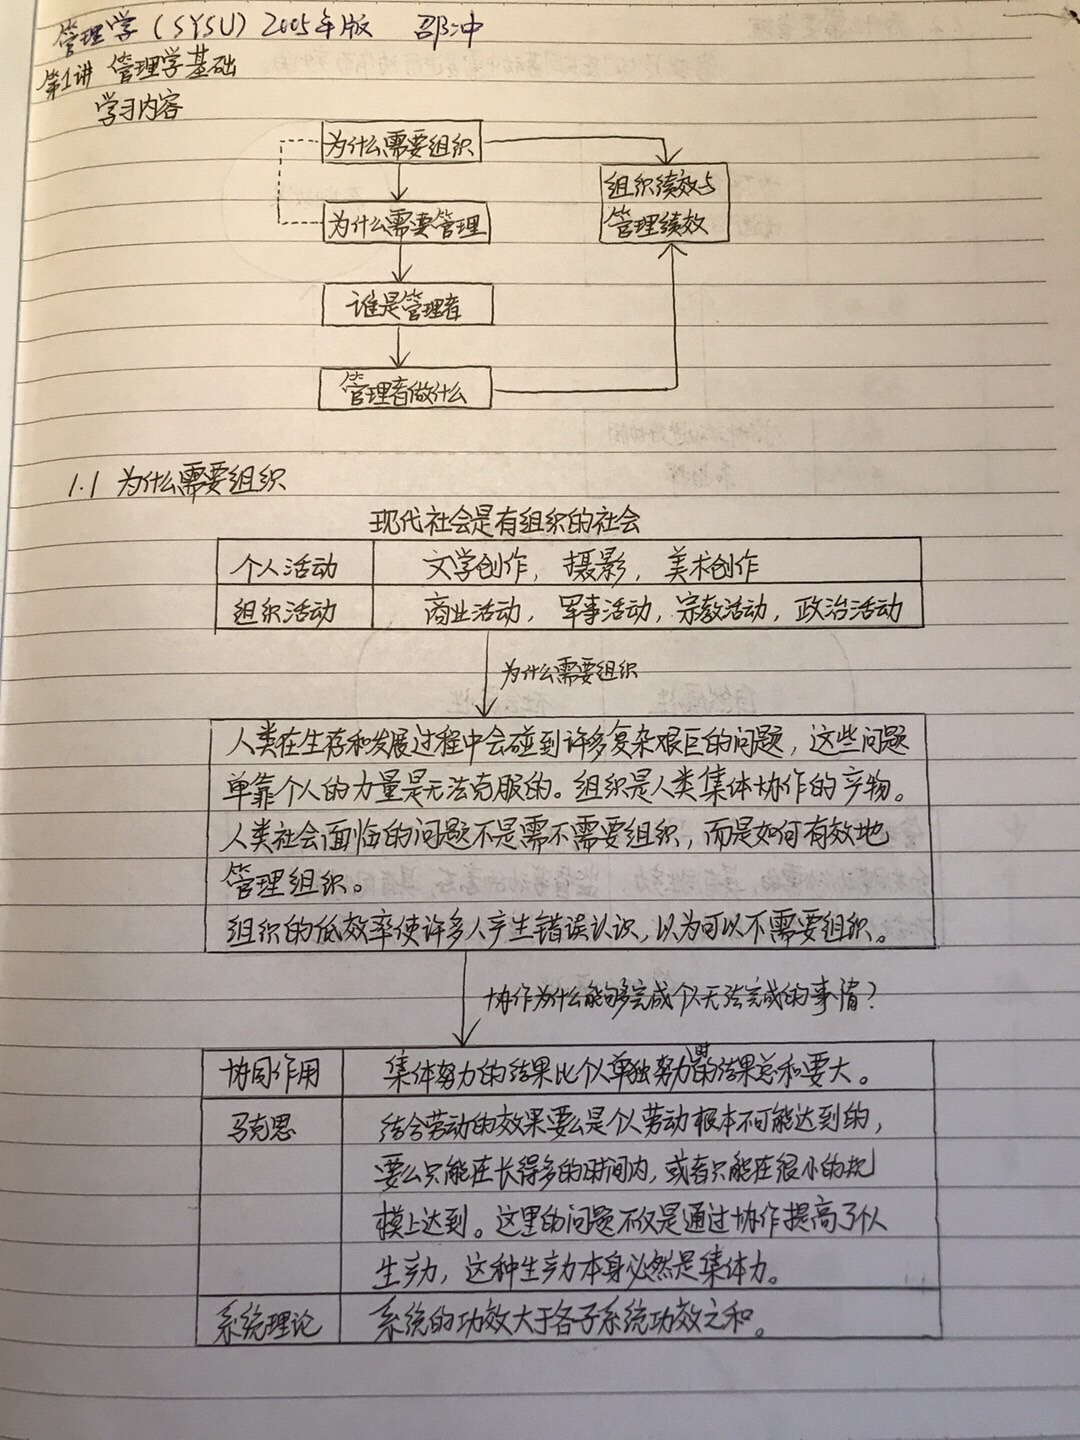 管理学（SYSU）2005年版 邵冲
第1讲 管理学基础
学习内容
为什么需要组织
组织绩效与
管理绩效
为什么需要管理
谁是管理者
管理者做什么
1.1 为什么需要组织
现代社会是有组织的社会
个人活动 文学创作，摄影，美术创作
组织活动 商业活动，军事活动，宗教活动，政治活动
为什么需要组织
人类在生存和发展过程中会碰到许多复杂艰巨的问题，这些问题
单靠个人的力量是无法克服的。组织是人类集体协作的产物。
人类社会面临的问题不是需不需要组织，而是如何有效地
管理组织。
组织的低效率使许多人产生错误认识，以为可以不需要组织。
协作为什么能够完成个人无法完成的事情？
协同作用 集体努力的结果比个人单独努力的结果总和要大。
马克思 结合劳动的效果要么是个人劳动根本不可能达到的，
要么只能在长得多的时间内，或者只能在很小的规
模上达到。这里的问题不仅是通过协作提高了个人
生产力，这种生产力本身必然是集体力。
系统理论 系统的功效大于各子系统功效之和。